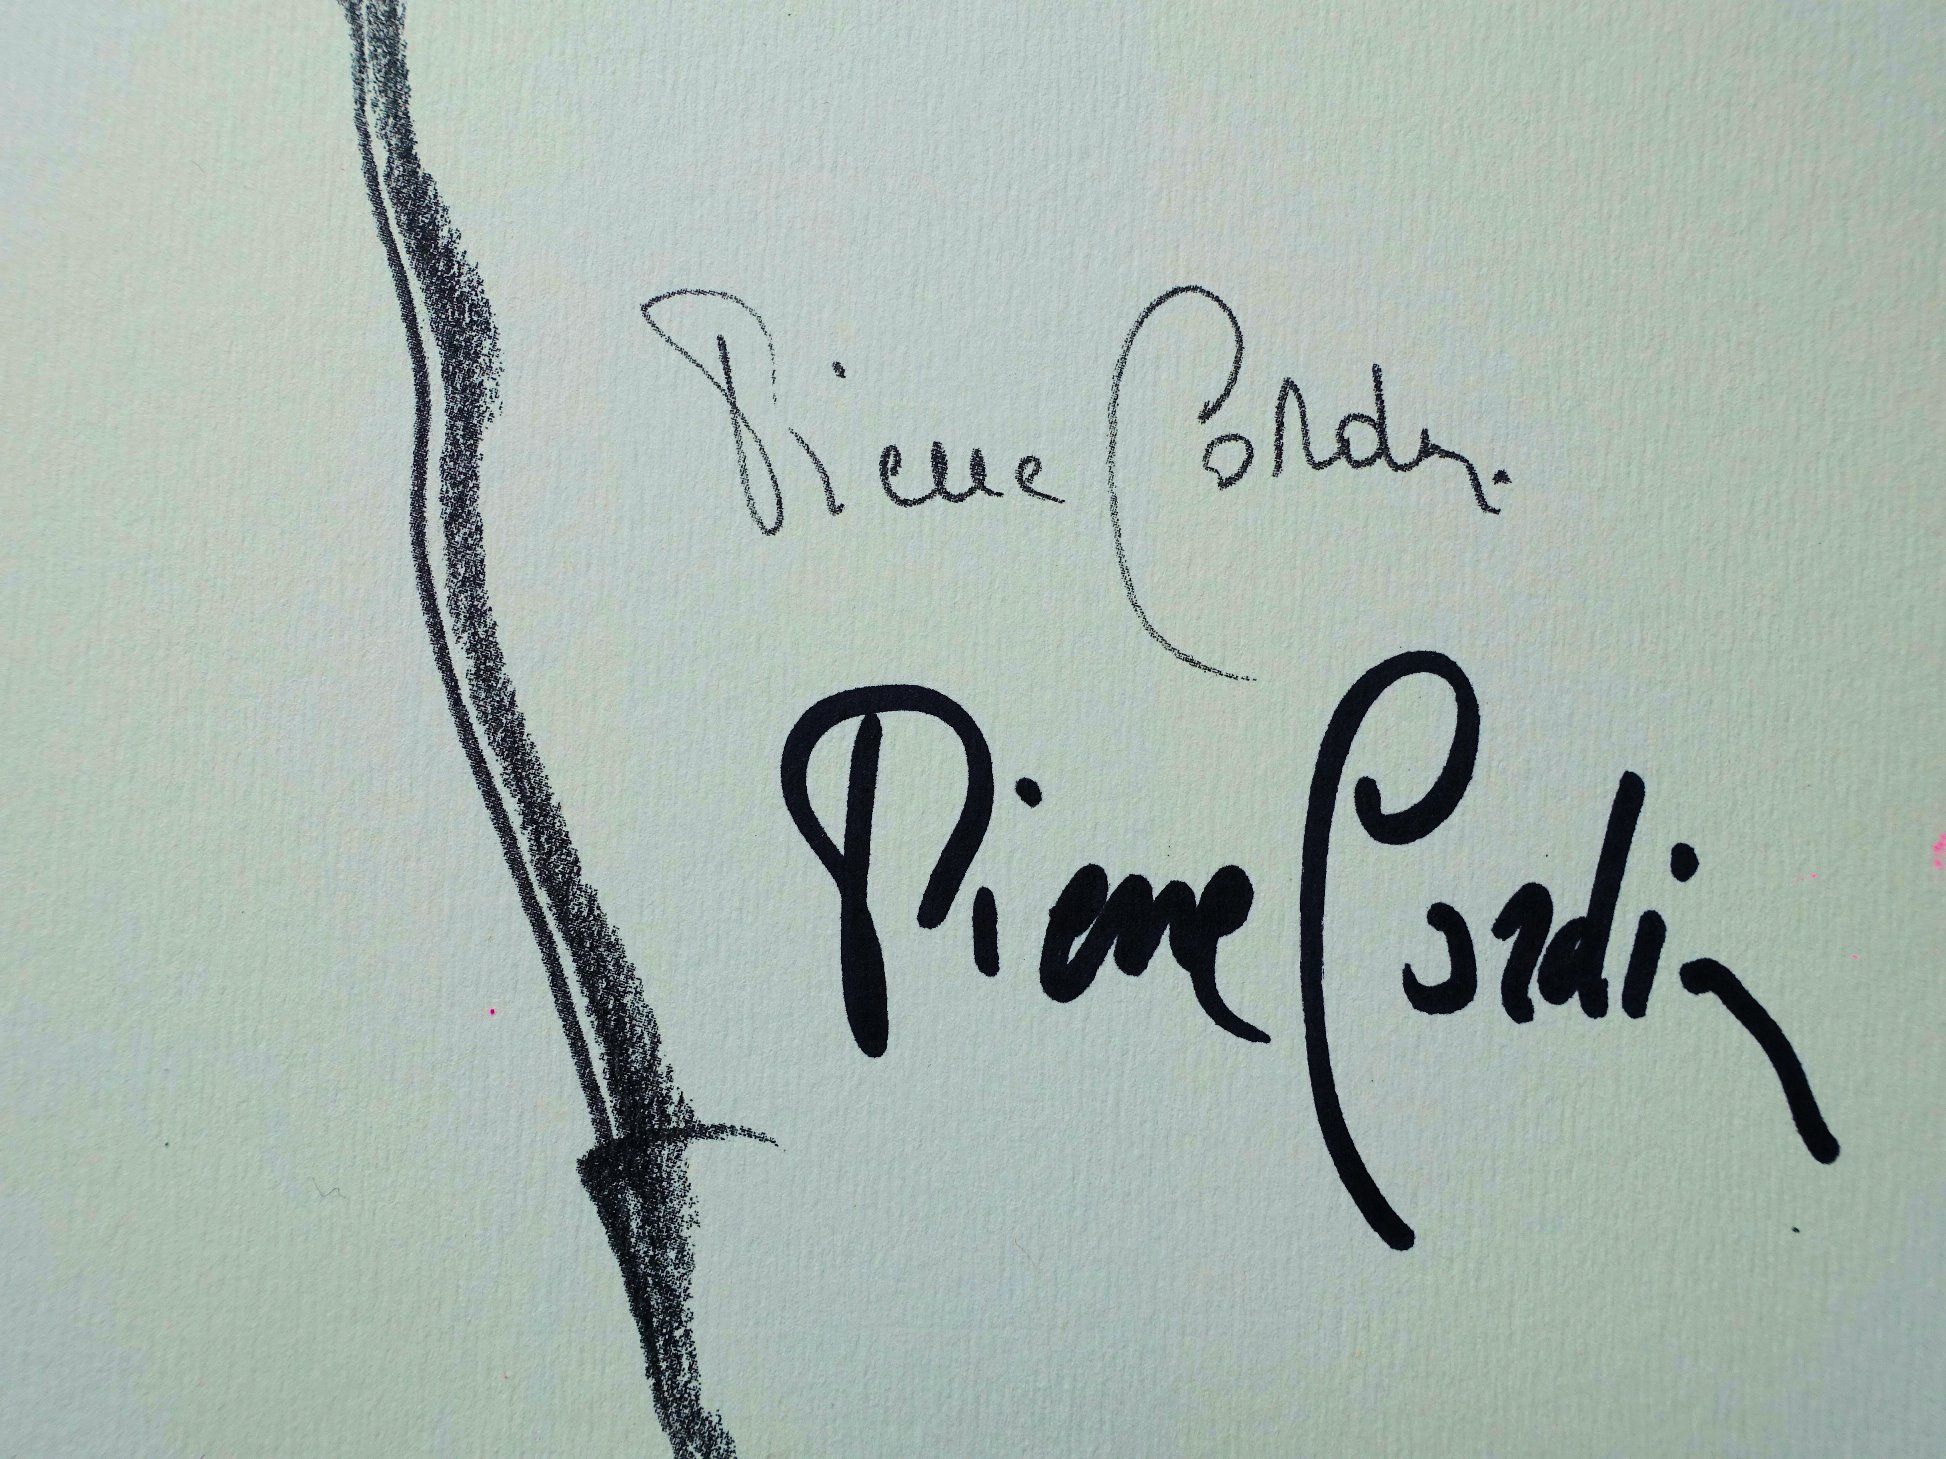 Pierre Cardin.
Pierre Cardin